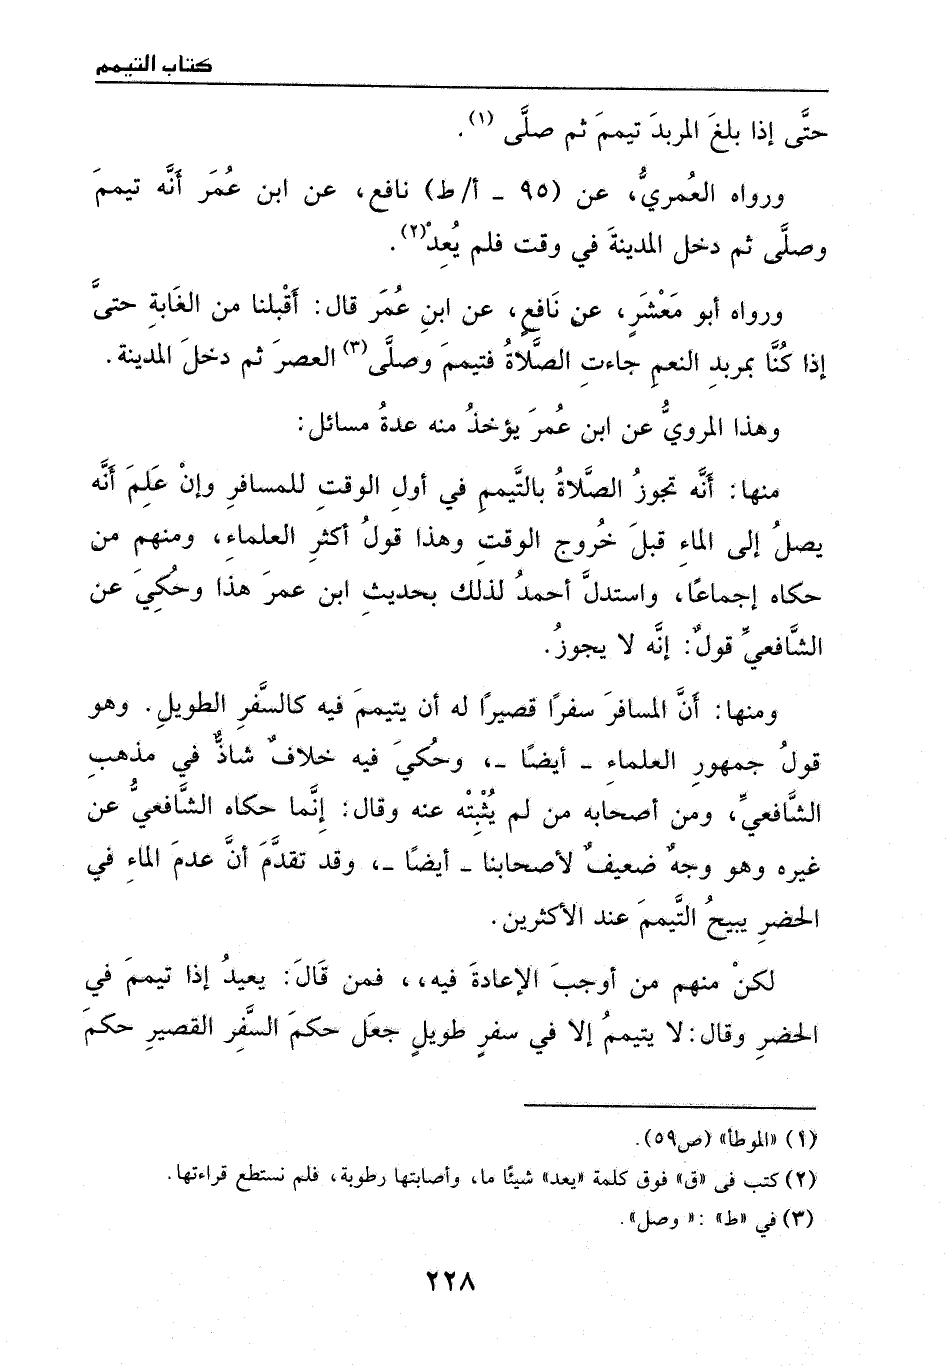 كتاب التيمم
حتَّى إذا بلغَ المربدَ تيممَ ثم صلَّى (١).
ورواه العُمريُّ، عن (٩٥ ـ أ/ط) نافع، عن ابن عُمَر أَنَّه تيممَ
وصلَّى ثم دخل المدينةَ في وقت فلم يُعِدْ(٢).
ورواه أبو مَعْشَرٍ، عن نَافعٍ، عن ابنِ عُمَر قال: أَقْبلنا من الغَابةِ حتىَّ
إذا كُنَّا بمربدِ النعمِ جاءتِ الصَّلاةُ فتيممَ وصلَّى(٣) العصرَ ثم دخلَ المدينة.
وهذا المرويُّ عن ابن عُمرَ يؤخذُ منه عدةُ مسائل:
منها: أَنَّه تجوزُ الصَّلاةُ بالتَّيممِ في أولِ الوقتِ للمسافرِ وإنْ عَلِمَ أَنَّه
يصلُ إلى الماءِ قبلَ خُروج الوقتِ وهذا قولُ أكثرِ العلماءِ، ومنهم من
حكاه إجماعًا، واستدلَّ أحمدُ لذلك بحديثِ ابن عمرَ هذا وحُكِيَ عن
الشَّافعيِّ قولٌ: إنَّه لا يجوزُ.
ومنها: أَنَّ المسافرَ سفرًا قصيرًا له أن يتيممَ فيه كالسَّفرِ الطويلِ. وهو
قولُ جمهورِ العلماءِ ـ أيضًا ـ، وحُكيَ فيه خلافٌ شاذٌّ في مذهبِ
الشَّافعيِّ، ومن أصحابه من لم يُثْبِتْه عنه وقال: إنَّما حكاه الشَّافعيُّ عن
غيره وهو وجهٌ ضعيفٌ لأصحابنا ـ أيضًا ـ، وقد تقدَّمَ أنَّ عدمَ الماءِ في
الحضرِ يبيحُ التَّيممَ عند الأكثرين.
لكنْ منهم من أوجبَ الإعادةَ فيه،، فمن قَالَ: يعيدُ إذا تيممَ في
الحضرِ وقال: لا يتيممُ إلا في سفرٍ طويلٍ جعَل حكمَ السَّفرِ القصيرِ حكمَ
(١) «الموطأ» (ص٥٩).
(٢) كتب في «ق» فوق كلمة «يعد» شيئًا ما، وأصابتها رطوبة، فلم نستطع قراءتها.
(٣) في «ط» :« وصل».
٢٢٨